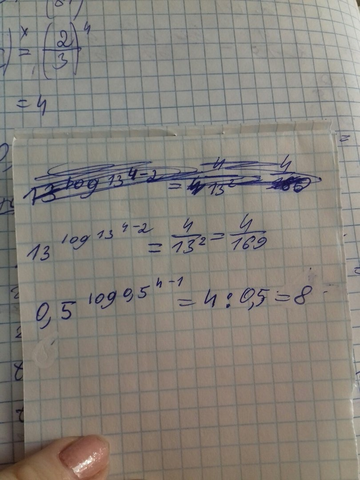 x = (2/3)^4
= 4
13^log13^4-2 = 4/13² = 4/169
0,5^log0,5^4-1 = 4 : 0,5 = 8